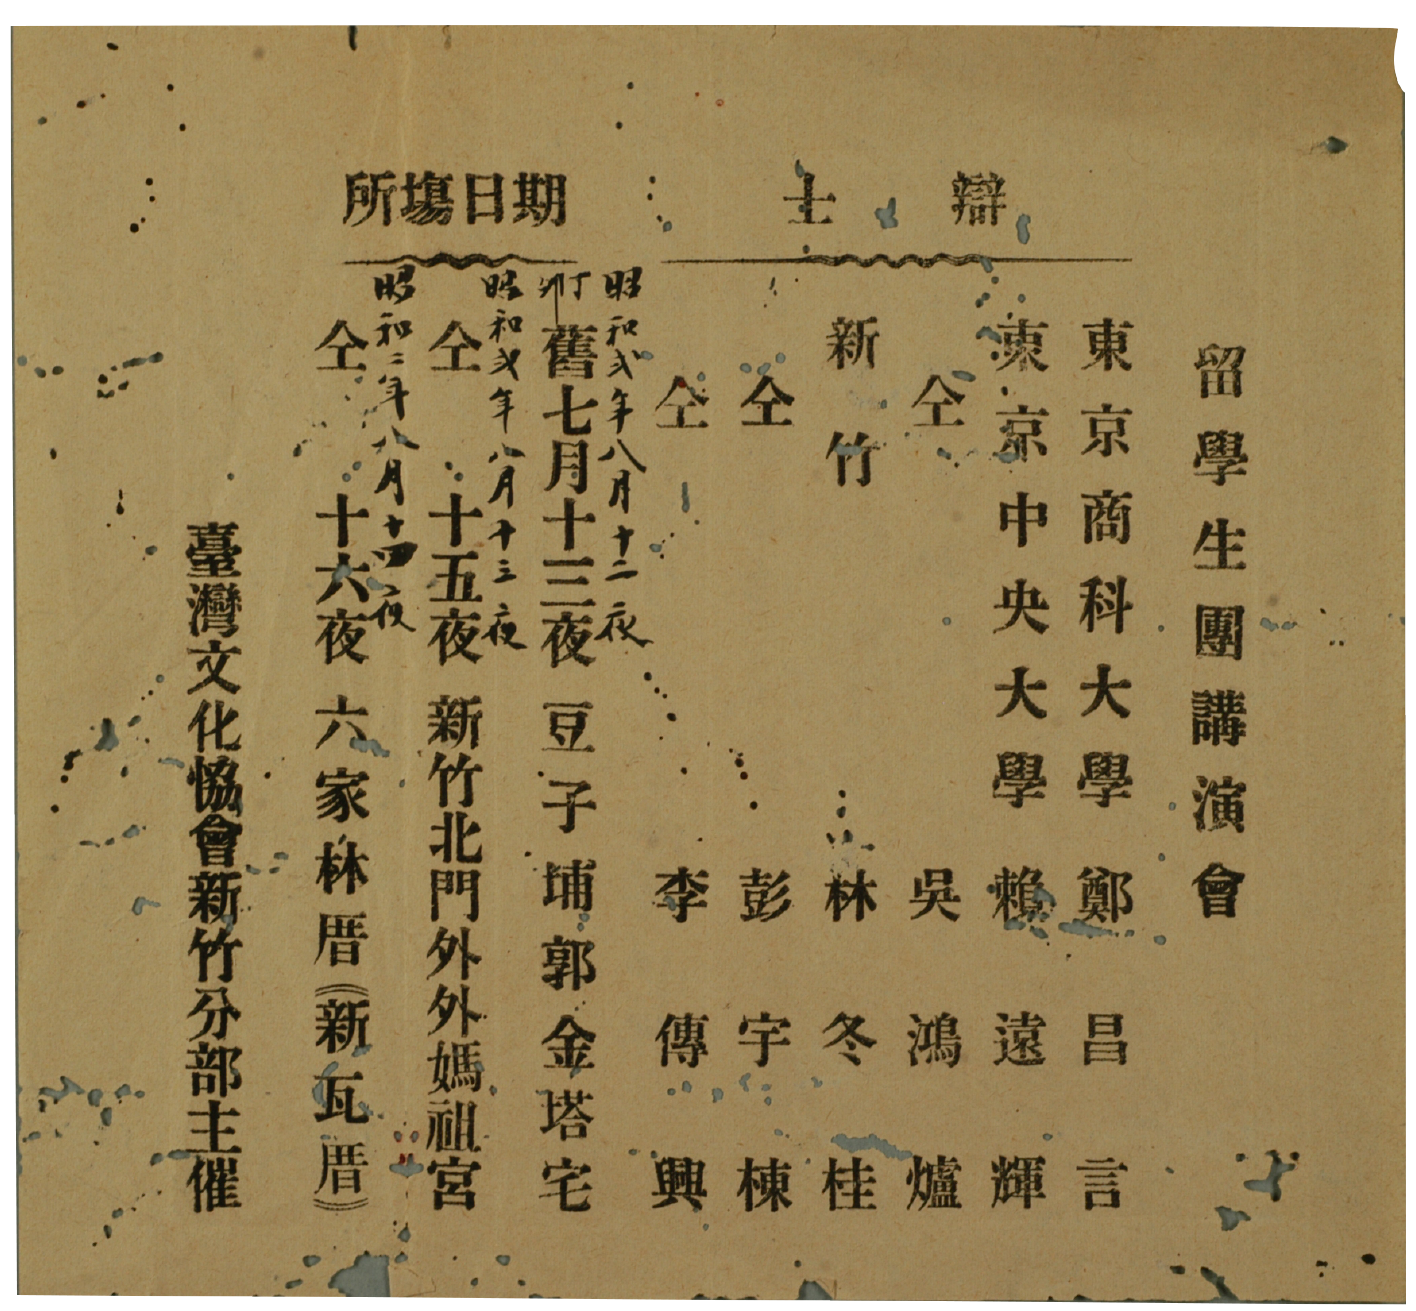 留學生團講演會
辯士
東京商科大學 鄭昌言
東京中央大學 賴遠輝
仝 吳鴻爐
新竹 林冬桂
仝 彭宇棟
仝 李傳興
期日場所
昭和弍年八月十二夜
丁卯
舊七月十三夜 豆子埔郭金塔宅
昭和弍年八月十三夜
仝 十五夜 新竹北門外外媽祖宮
昭和二年八月十四夜
仝 十六夜 六家林厝(新瓦厝)
臺灣文化協會新竹分部主催